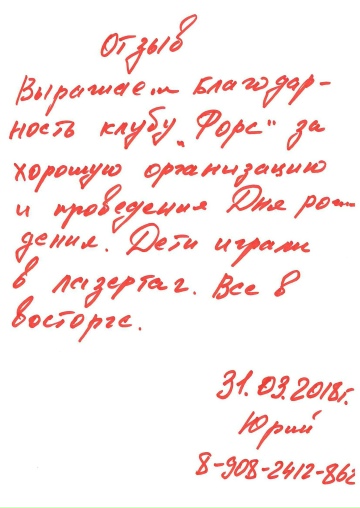 Отзыв
Выражаем благодар-
ность клубу „Форс" за
хорошую организацию
и проведения Дня рож
дения. Дети играли
в лазертаг. Все в
восторге.
31.03.2018г.
Юрий
8-908-2412-862